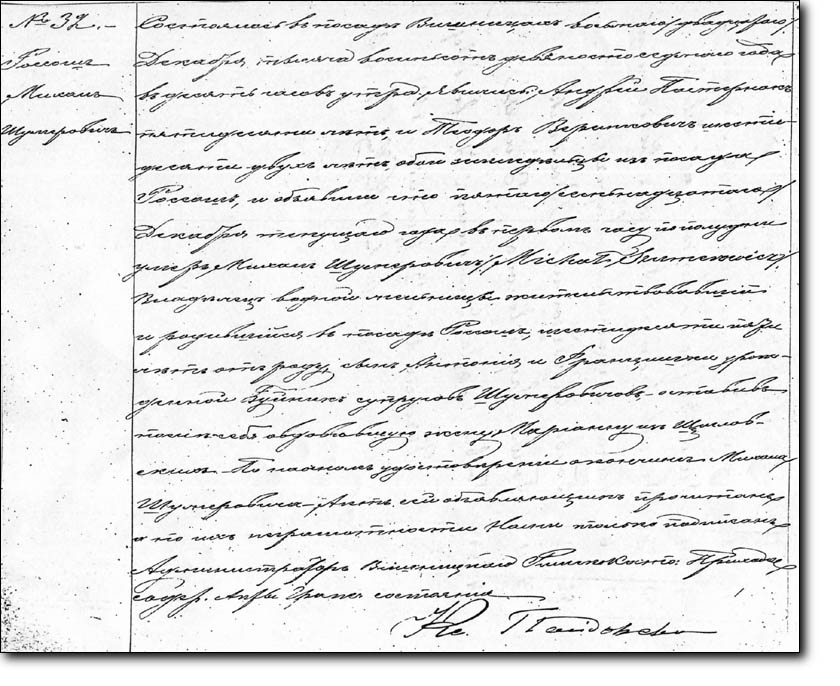 № 32.-
Россошъ
Михалъ
Шумеровичъ
Состоялось въ посадѣ Вишницахъ восьмаго /двадцатаго/
Декабря, тысяча восемьсотъ девяносто седьмаго года
въ десять часовъ утра, явились: Андрей Пастернакъ
пятидесяти лѣтъ, и Теодоръ шести-
десяти двухъ лѣтъ, оба земледѣльцы изъ посада
Россошъ, и объявили что пятаго /семнадцатаго/
Декабря текущаго года въ первомъ часу по полудни
умеръ Михалъ Шумеровичъ /Michał Szumerowicz/
Владѣлецъ водной мельницы жительствовавшій
и родившійся въ посадѣ Россошъ, шестидесяти пяти
лѣтъ отъ роду, сынъ Антонія и Францишки урож-
денной супруговъ Шумеровичовъ, оставивъ
послѣ себя овдовѣвшую жену Маріанну изъ
По настномъ удостовѣреніи о кончинѣ Михала
Шумеровича, Актъ сей объявляющимъ прочитанъ
а по ихъ неграмотности Нами только подписанъ
Администраторъ Вишницкаго Римскокато: Прихода
содер. Акты Граж. состоянія
Кс.